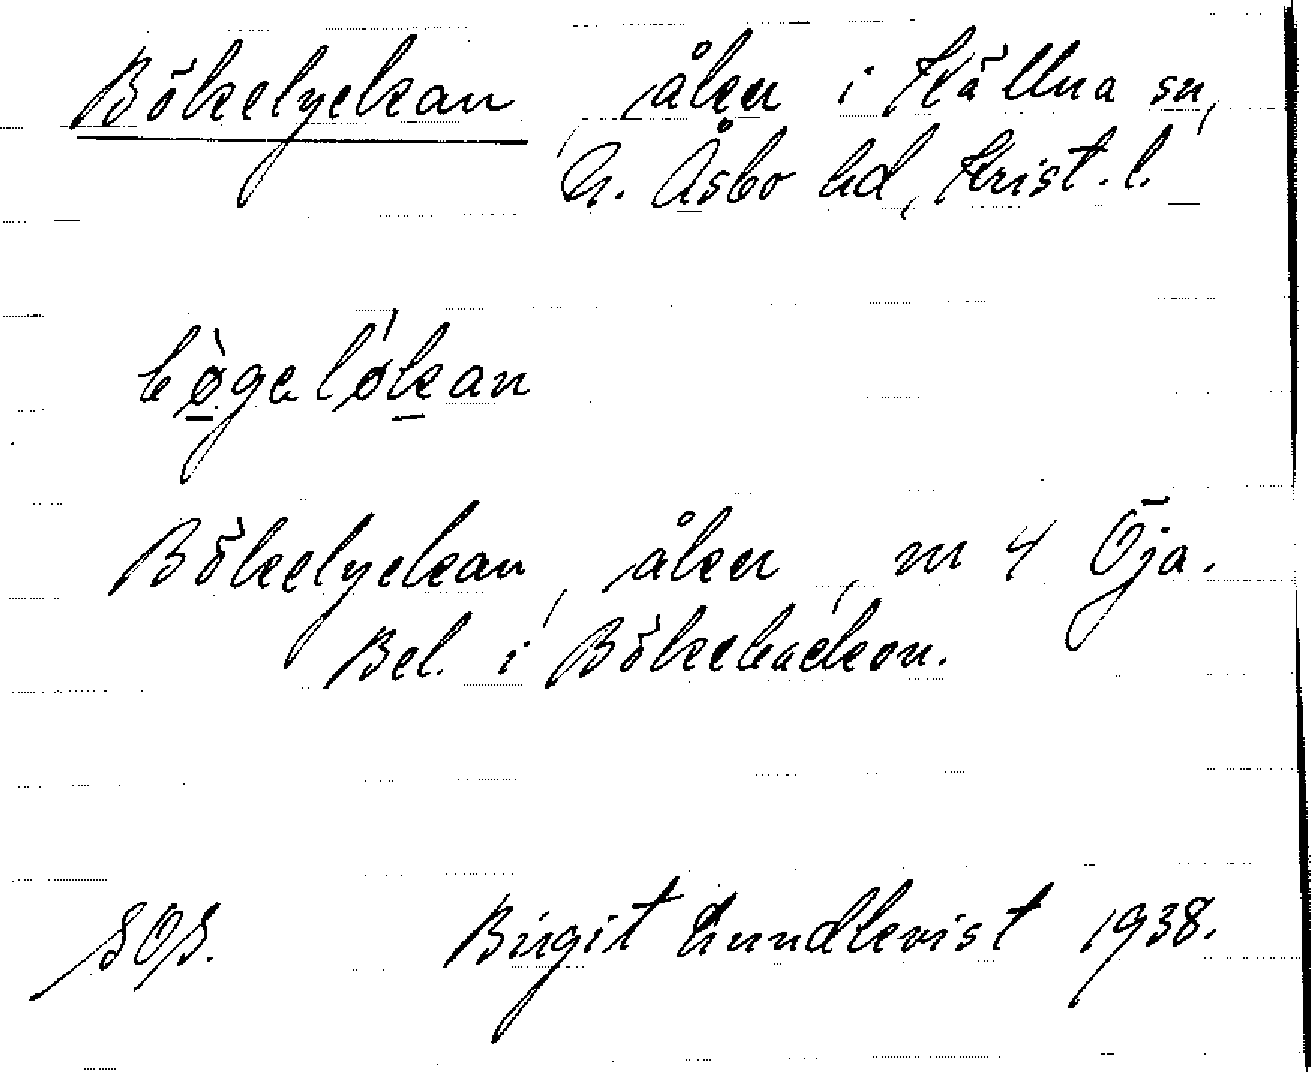 Bökelyckan, åker i Källna sn,
N. Åsbo hd, Krist. l.
bø̀gelo̍kan
Bökelyckan, åker, m 4 Öja.
Bel. i Bökebacken.
SOS. Birgit Lundkvist 1938.